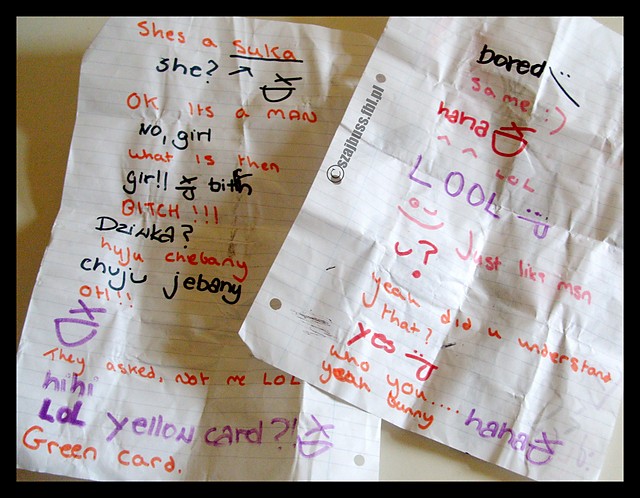 Shes a suka
she? ↗ XD
OK its a MAN
NO, girl
what is then
girl!! XD bitch
BITCH !!!
DZIWKA?
huju chebany
chuju jebany
OH!!
XD
They asked, not me LOL
hihi
LOL yellow card?! XD
Green card.
bored :\
same :)
haha XD
^ ^ LOL
LOOL
Just like msn
u?
yeah did u understand
that?
yes
who you....
yeah bunny
haha XD
©szajbuss.fbl.pl